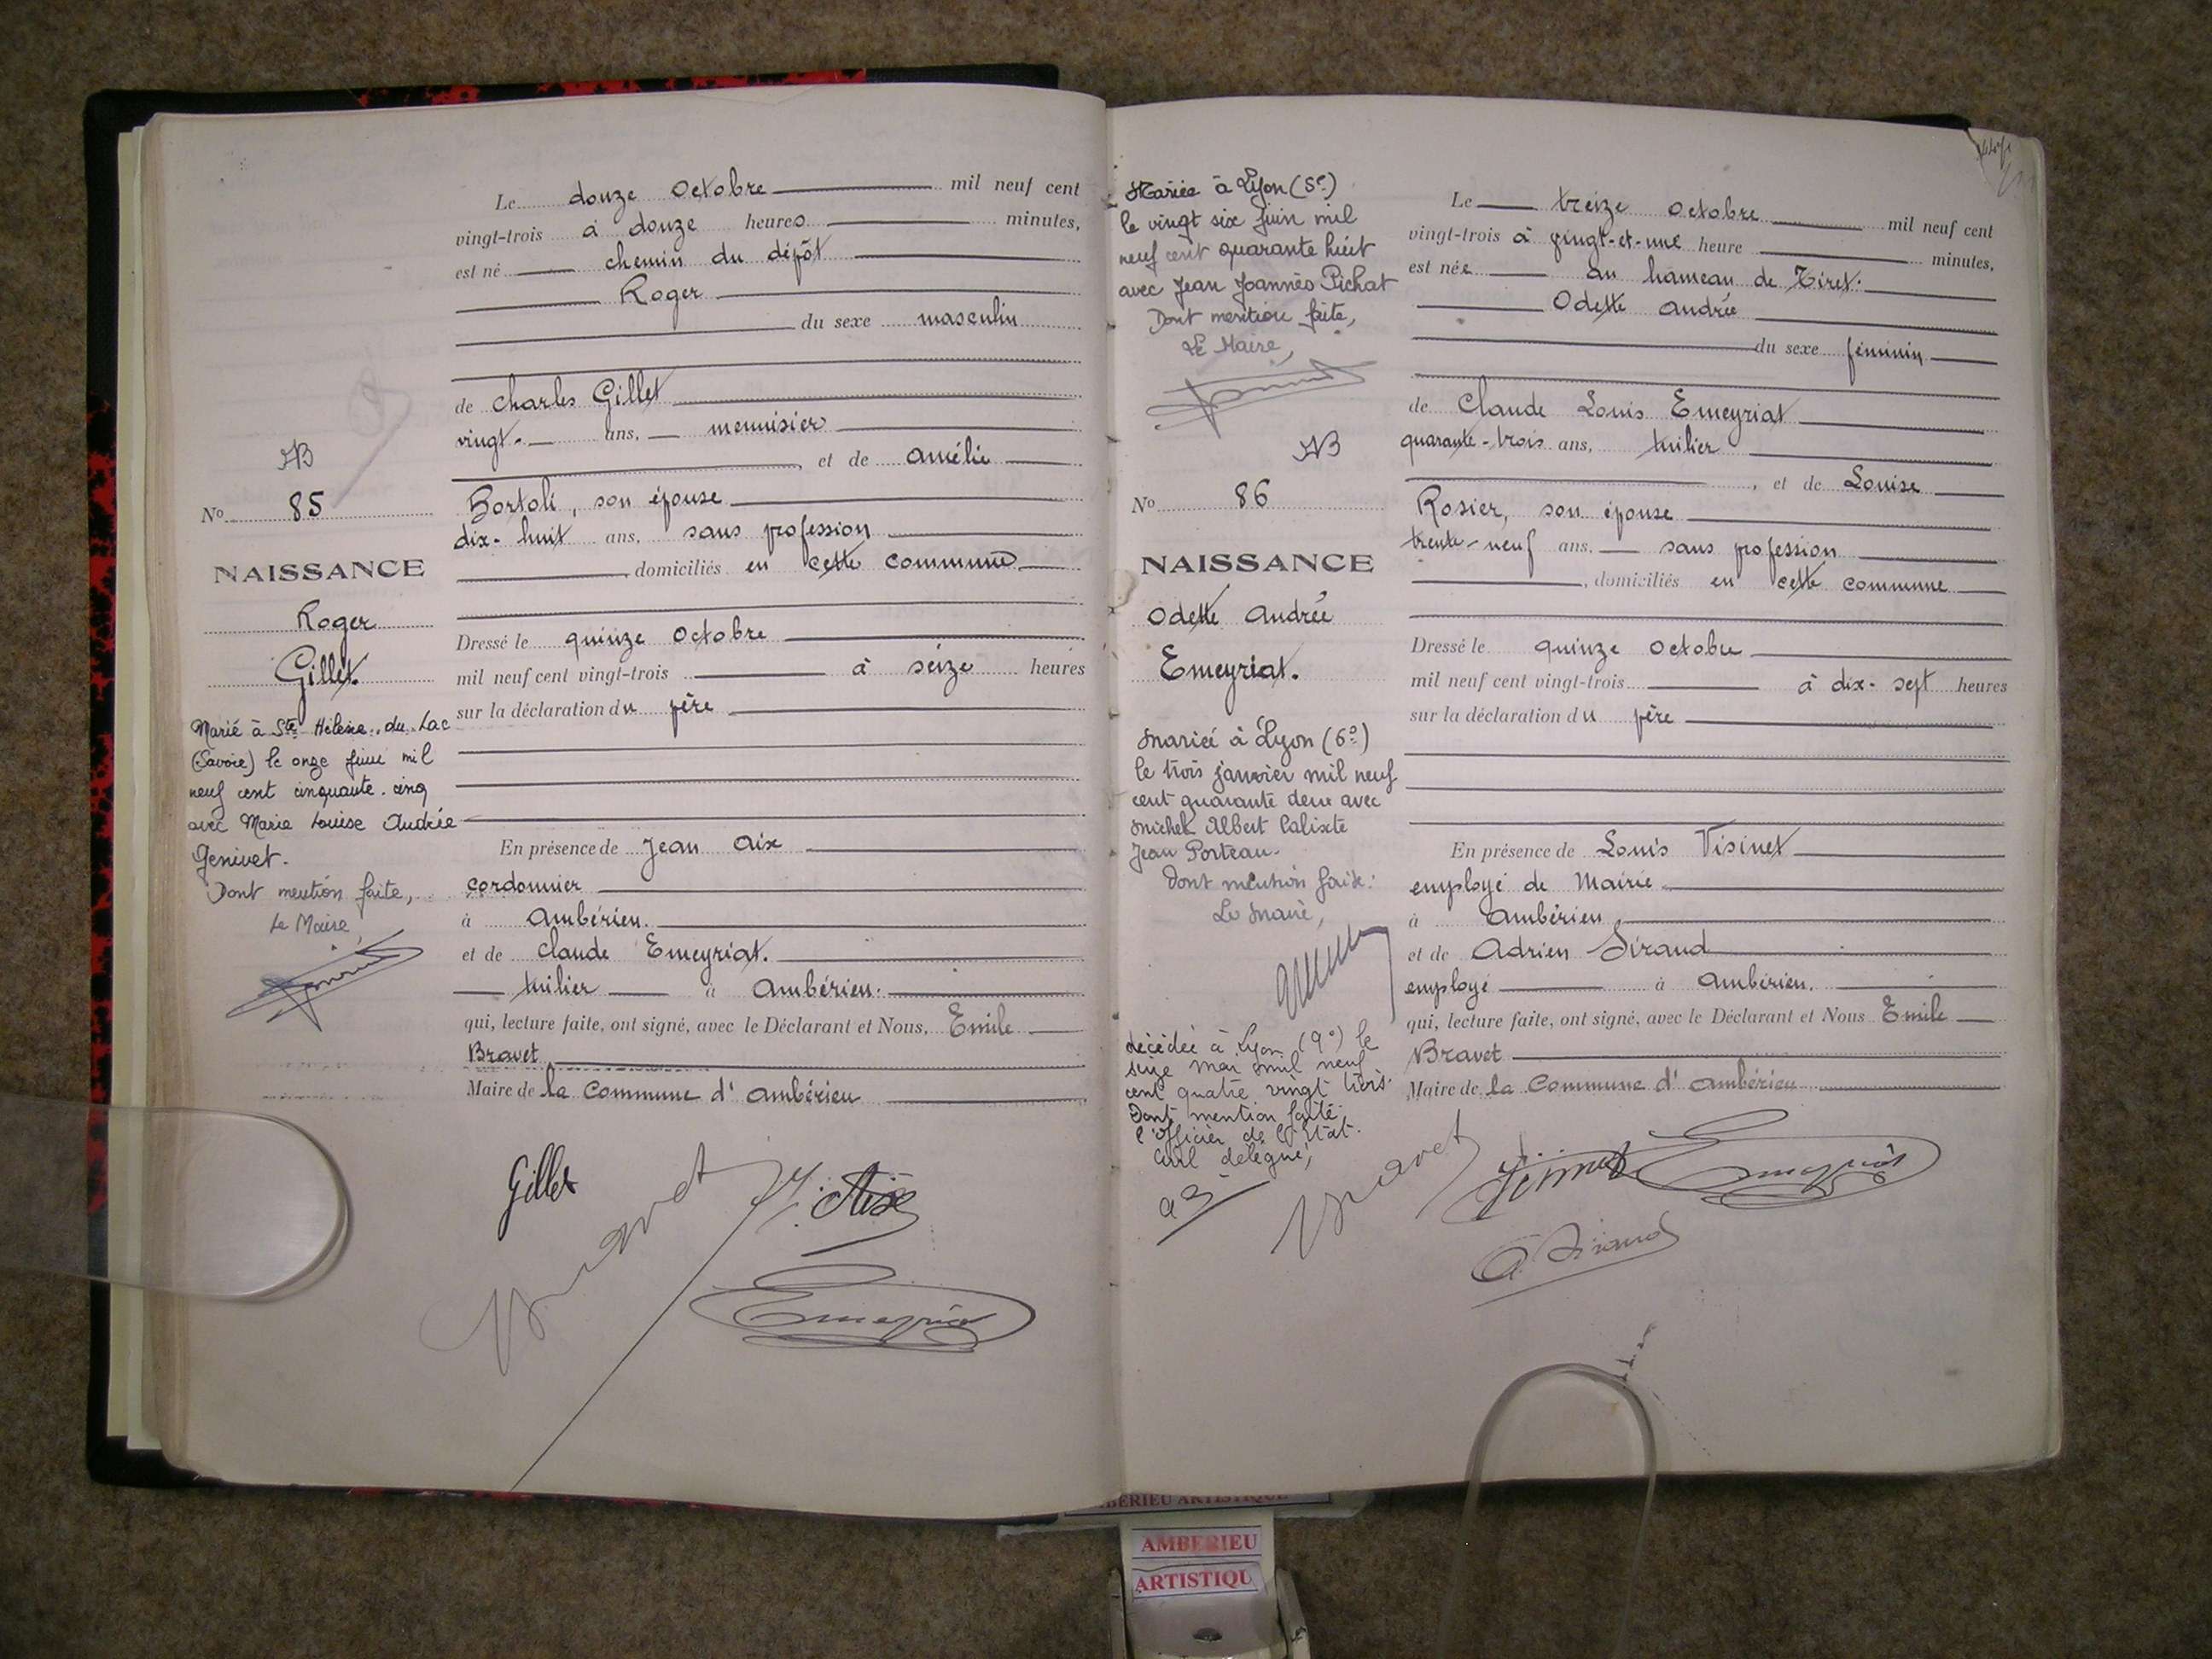 Le douze Octobre mil neuf cent
vingt-trois à douze heures minutes,
est né chemin du dépôt
Roger
du sexe masculin
de Charles Gillet
vingt- ans, menuisier
et de Amélie
Bortoli, son épouse
dix-huit ans, sans profession
domiciliés en cette commune
Dressé le quinze Octobre
mil neuf cent vingt-trois à seize heures
sur la déclaration du père
En présence de Jean Aix
cordonnier
à Ambérieu.
et de Claude Emeyriat.
tuilier à Ambérieu.
qui, lecture faite, ont signé, avec le Déclarant et Nous, Emile
Bravet
Maire de la Commune d'Ambérieu
AB
No 85
NAISSANCE
Roger
Gillet.
Marié à Ste Hélène du Lac
(Savoie) le onze juin mil
neuf cent cinquante-cinq
avec Marie Louise Andrée
Genivet.
Dont mention faite,
Le Maire,
Gillet
Bravet
J. Aix
Emeyriat
Mariée à Lyon (5e)
le vingt six juin mil
neuf cent quarante huit
avec Jean Joannès Pichat
Dont mention faite,
Le Maire,
AB
No 86
NAISSANCE
Odette Andrée
Emeyriat.
Mariée à Lyon (6e)
le trois janvier mil neuf
cent quarante deux avec
Michel Albert Calixte
Jean Porteau.
Dont mention faite:
Le Maire,
décédée à Lyon (9e) le
seize mai mil neuf
cent quatre vingt trois.
Dont mention faite.
l'Officier de l'Etat-
Civil délégué,
Le treize Octobre mil neuf cent
vingt-trois à vingt-et-une heure minutes,
est née au hameau de Tiret.
Odette Andrée
du sexe féminin
de Claude Louis Emeyriat
quarante-trois ans, tuilier
, et de Louise
Rosier, son épouse
trente-neuf ans, sans profession
, domiciliés en cette commune
Dressé le quinze Octobre
mil neuf cent vingt-trois à dix-sept heures
sur la déclaration du père
En présence de Louis Visinet
employé de Mairie
à Ambérieu,
et de Adrien Siraud
employé à Ambérieu.
qui, lecture faite, ont signé, avec le Déclarant et Nous Emile
Bravet
Maire de la Commune d'Ambérieu
Bravet
Visinet
Emeyriat
A. Siraud
AMBERIEU ARTISTIQUE
AMBERIEU
ARTISTIQU